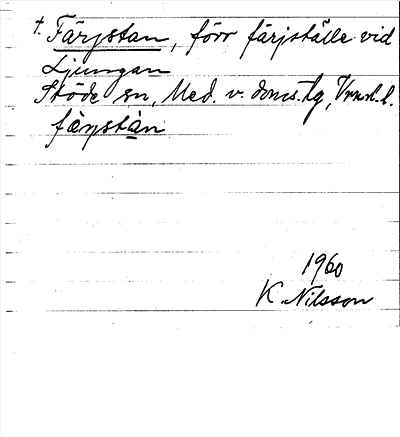 †. Färjstan, förr färjställe vid
Ljungan
Stöde sn, Med. v. doms.-lg,
färjstàn
1960
K. Nilsson